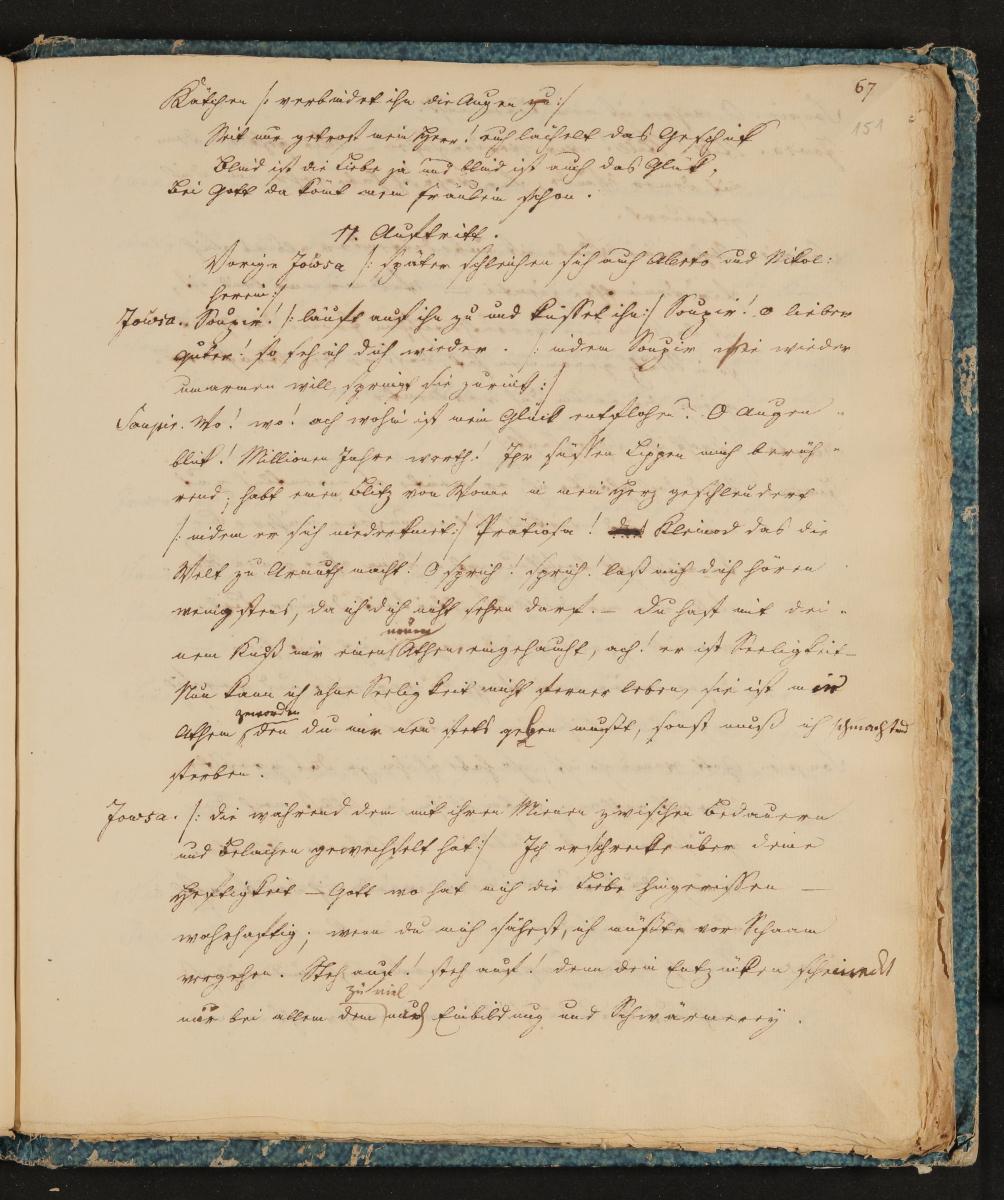 67
151
Kätchen /: verbindet ihm die Augen zu :/
Seit nur getrost mein Herr! euch lächelt das Geschik
Blind ist die Liebe ja und blind ist auch das Glük,
Bei Gott da kömt mein Fräulein schon.
11. Auftritt.
Vorige Jowsa /: später schleichen sich auch Alerto und Nikol:
herein :/
Jowsa. Soupir! /: läuft auf ihn zu und küsset ihn :/ Soupir! o lieber
guter! so seh ich dich wieder. /: indem Soupir sie wieder
umarmen will, springt sie zurük :/
Soupir. Wo! wo! ach wohin ist mein Glück entflohen? O Augen-
blik! Millionen Jahre werth! Ihr süssen Lippen mich berüh-
rend, habt einen Blitz von Wonne in mein Herz geschleudert
/: indem er sich niederkniet :/ Prätiosa! Kleinod das die
Welt zu Armuth macht! O sprich! sprich! laß mich dich hören
wenigstens, da ich dich nicht sehen darf. – Du hast mit dei-
neuen
nem Kuß mir einen Athem eingehaucht, ach! er ist Seeligkeit –
Nun kann ich ohne Seeligkeit nicht ferner leben, sie ist mein
geworden
Athem, den du mir neu stets geben mußt, sonst muß ich schmachtend
sterben.
Jowsa. /: die während dem mit ihren Mienen zwischen Bedauern
und Belachen gewechselt hat :/ Ich erschrecke über deine
Heftigkeit – Gott wo hat mich die Liebe hingerissen –
wahrhaftig, wenn du mich sähest, ich müßte vor Schaam
vergehen. Steh auf! steh auf! denn dein Entzücken scheinet
zu viel
mir bei allem dem nur Einbildung und Schwärmerey.